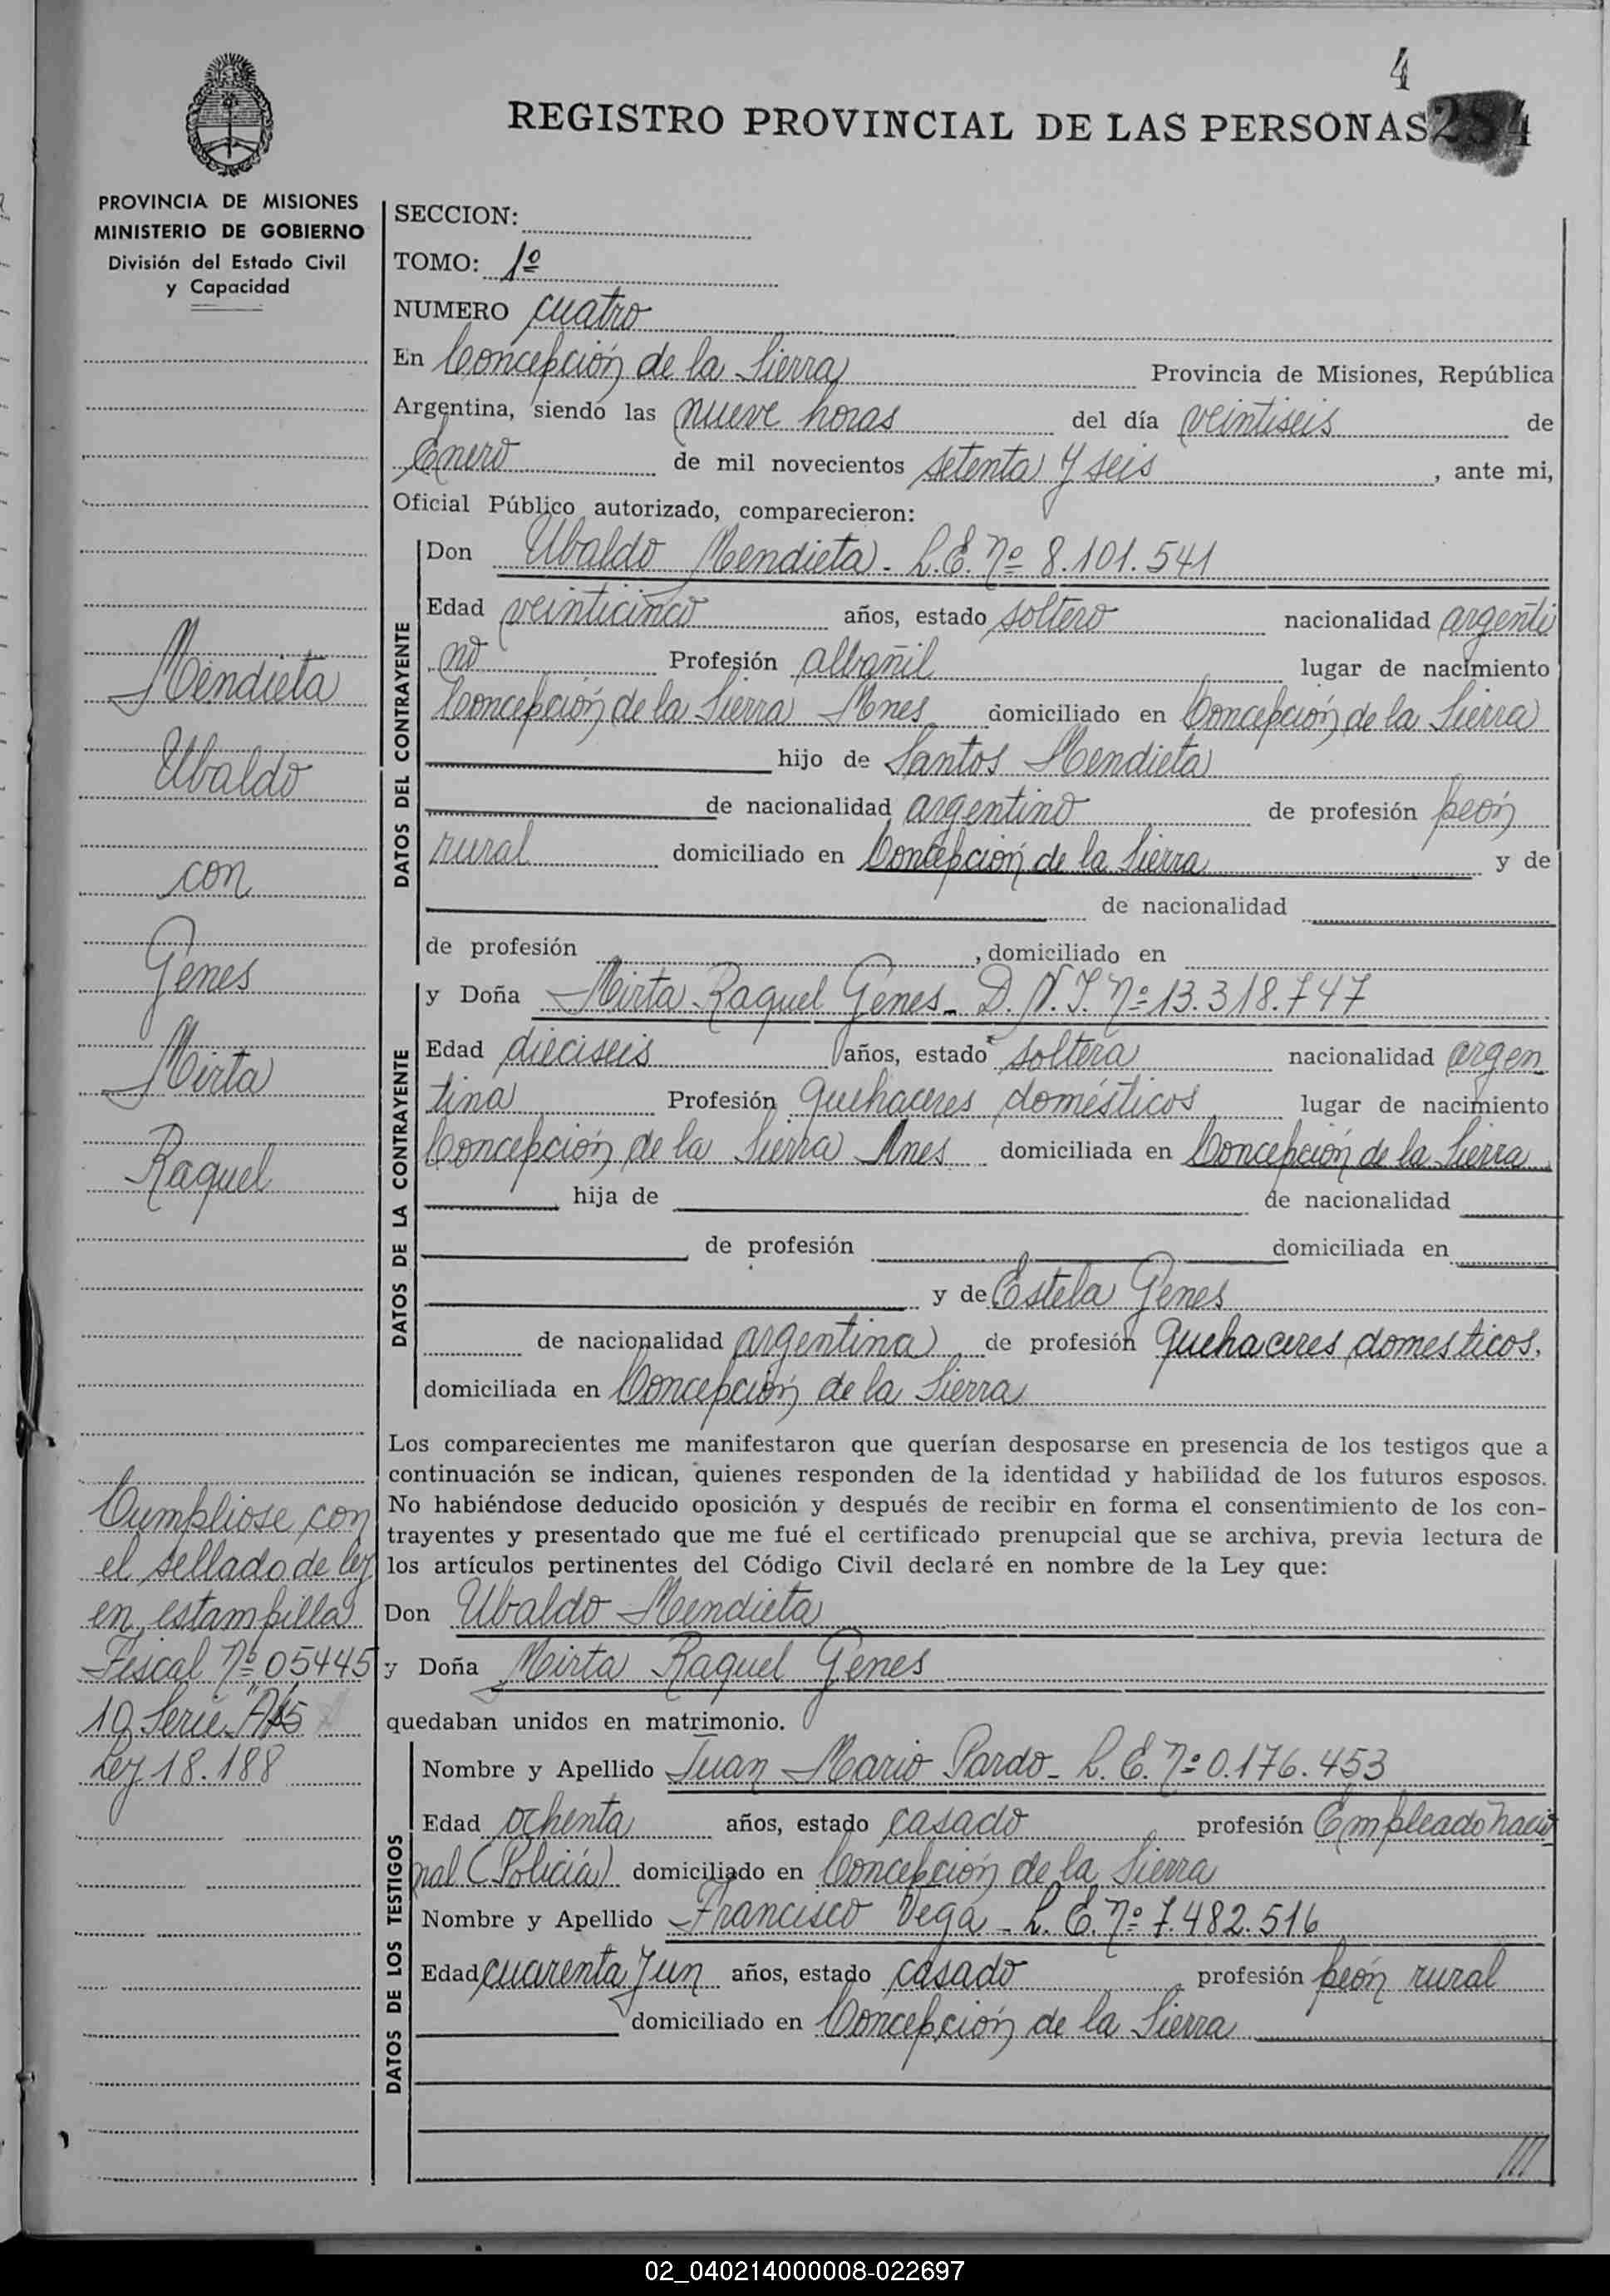 4
REGISTRO PROVINCIAL DE LAS PERSONAS
PROVINCIA DE MISIONES
MINISTERIO DE GOBIERNO
División del Estado Civil
y Capacidad
SECCION:
TOMO: 1º
NUMERO cuatro
En Concepción de la Sierra Provincia de Misiones, República
Argentina, siendo las nueve horas del día veintiseis de
Enero de mil novecientos setenta y seis, ante mi,
Oficial Público autorizado, comparecieron:
DATOS DEL CONTRAYENTE
Don Ubaldo Mendieta - L.E. Nº 8.101.541
Edad veinticinco años, estado soltero nacionalidad argenti
no Profesión albañil lugar de nacimiento
Concepción de la Sierra Mnes domiciliado en Concepción de la Sierra
hijo de Santos Mendieta
de nacionalidad argentino de profesión peón
rural domiciliado en Concepción de la Sierra y de
de nacionalidad
de profesión , domiciliado en
DATOS DE LA CONTRAYENTE
y Doña Mirta Raquel Genes - D.N.I. Nº 13.318.747
Edad dieciseis años, estado soltera nacionalidad argen
tina Profesión quehaceres domésticos lugar de nacimiento
Concepción de la Sierra Mnes domiciliada en Concepción de la Sierra
hija de de nacionalidad
de profesión domiciliada en
y de Estela Genes
de nacionalidad argentina de profesión quehaceres domesticos.
domiciliada en Concepción de la Sierra
Los comparecientes me manifestaron que querían desposarse en presencia de los testigos que a
continuación se indican, quienes responden de la identidad y habilidad de los futuros esposos.
No habiéndose deducido oposición y después de recibir en forma el consentimiento de los con-
trayentes y presentado que me fué el certificado prenupcial que se archiva, previa lectura de
los artículos pertinentes del Código Civil declaré en nombre de la Ley que:
Don Ubaldo Mendieta
y Doña Mirta Raquel Genes
quedaban unidos en matrimonio.
DATOS DE LOS TESTIGOS
Nombre y Apellido Juan Mario Pardo - L.E. Nº 0.176.453
Edad ochenta años, estado casado profesión Empleado nacio
nal (Policía) domiciliado en Concepción de la Sierra
Nombre y Apellido Francisco Vega - L.E. Nº 7.482.516
Edad cuarenta y un años, estado casado profesión peón rural
domiciliado en Concepción de la Sierra
///
Mendieta
Ubaldo
con
Genes
Mirta
Raquel
Cumpliose con
el sellado de ley
en estampilla
Fiscal Nº 05445
19 Serie
Ley 18.188
02_040214000008-022697